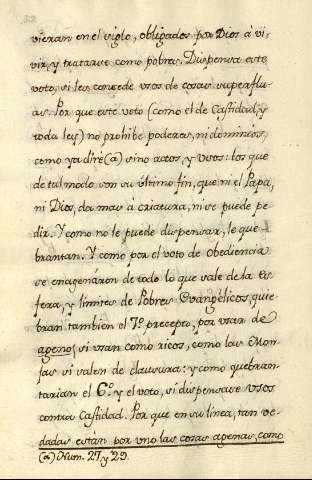 32
vieran en el siglo, obligados por Dios à vi-
vir, y tratarse como pobres. Dispensa este
voto, si les concede vsos de cosas superflu-
as. Por que este voto (como el de Castidad, y
toda ley) no prohibe poderes, ni dominios,
como ya dire (a) sino actos, y vsos: los que
de tal modo son su último fin, que ni el Papa,
ni Dios, da mas à criatura, ni se puede pe-
dir. Y como no le puede dispensar, le que-
brantan. Y como por el voto de obediencia
se enagenáron de todo lo que sale de la es-
fera, y limites de Pobres Evangélicos, quie-
bran tambien el 7º precepto, por vsar de
ageno, si vsan como ricos, como las Mon-
jas si salen de clausura: y como quebran-
tarian el 6º y el voto, si dispensase vsos
contra Castidad. Por que en su linea, tan ve-
dadas están por vno las cosas agenas, como
(a) Num. 27 y 29.